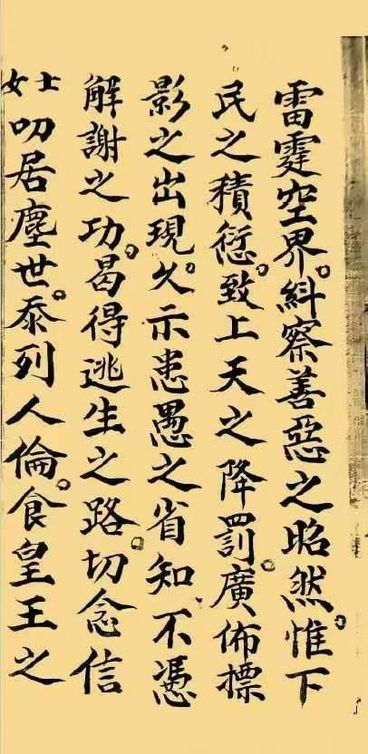 雷霆空界。糾察善惡之昭然。惟下
民之積愆。致上天之降罰。廣佈標
影之出現。久示患愚之省知不憑
解謝之功。曷得逃生之路。切念信
士女叨居塵世。忝列人倫。食皇王之